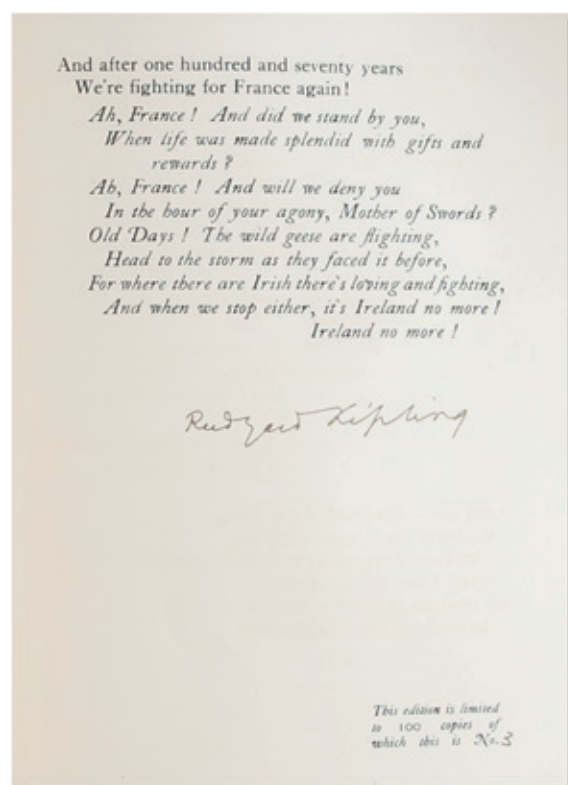 And after one hundred and seventy years
We're fighting for France again!
Ah, France! And did we stand by you,
When life was made splendid with gifts and
rewards?
Ah, France! And will we deny you
In the hour of your agony, Mother of Swords?
Old Days! The wild geese are flighting,
Head to the storm as they faced it before,
For where there are Irish there's loving and fighting,
And when we stop either, it's Ireland no more!
Ireland no more!
Rudyard Kipling
This edition is limited
to 100 copies of
which this is No. 3